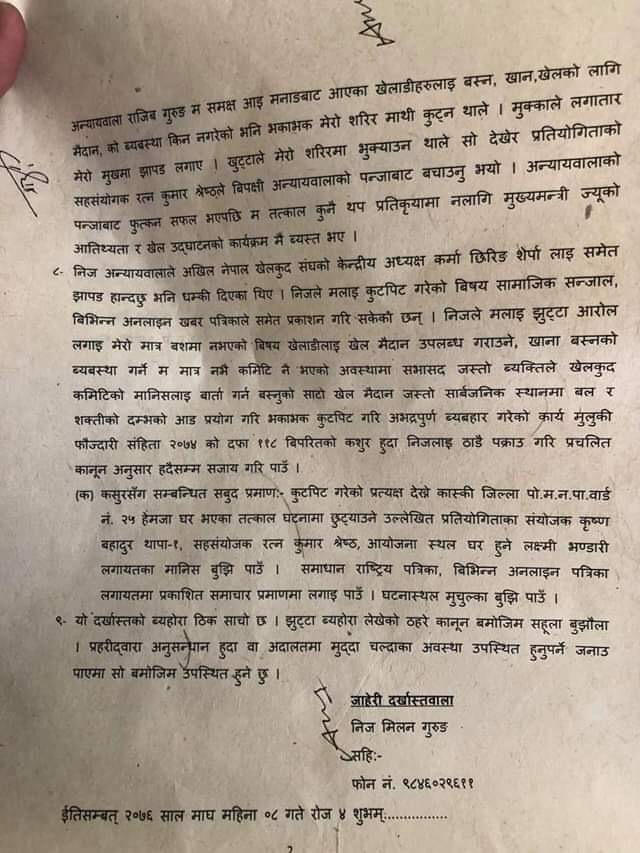 अन्यायवाला राजिब गुरुङ म समक्ष आइ मनाङबाट आएका खेलाडीहरुलाइ बस्न, खान,खेलको लागि
मैदान, को ब्यबस्था किन नगरेको भनि भकाभक मेरो शरिर माथी कुट्न थाले । मुक्काले लगातार
मेरो मुखमा झापड लगाए । खुट्टाले मेरो शरिरमा भुक्याउन थाले सो देखेर प्रतियोगिताको
सहसंयोगक रत्न कुमार श्रेष्ठले बिपक्षी अन्यायवालाको पन्जाबाट बचाउनु भयो । अन्यायवालाको
पन्जाबाट फुत्कन सफल भएपछि म तत्काल कुनै थप प्रतिकृयामा नलागि मुख्यमन्त्री ज्यूको
आतिथ्यता र खेल उद्घाटनको कार्यक्रम मै ब्यस्त भए ।
८- निज अन्यायवालाले अखिल नेपाल खेलकुद संघको केन्द्रीय अध्यक्ष कर्मा छिरिङ शेर्पा लाइ समेत
झापड हान्दछु भनि धम्की दिएका थिए । निजले मलाइ कुटपिट गरेको बिषय सामाजिक सन्जाल,
बिभिन्न अनलाइन खबर पत्रिकाले समेत प्रकाशन गरि सकेको छन् । निजले मलाइ झुट्टा आरोल
लगाइ मेरो मात्र बशमा नभएको बिषय खेलाडीलाइ खेल मैदान उपलब्ध गराउने, खाना बस्नको
ब्यबस्था गर्ने म मात्र नभै कमिटि नै भएको अवस्थामा सभासद जस्तो ब्यक्तिले खेलकुद
कमिटिको मानिसलाइ बार्ता गर्न बस्नुको साटो खेल मैदान जस्तो सार्बजनिक स्थानमा बल र
शक्तीको दम्भको आड प्रयोग गरि भकाभक कुटपिट गरि अभद्रपुर्ण ब्यबहार गरेको कार्य मुलुकी
फौज्दारी संहिता २०७४ को दफा ११८ बिपरितको कशुर हुदा निजलाइ ठाडै पक्राउ गरि प्रचलित
कानून अनुसार हदैसम्म सजाय गरि पाउँ ।
(क) कसुरसँग सम्बन्धित सबुद प्रमाण:- कुटपिट गरेको प्रत्यक्ष देख्ने कास्की जिल्ला पो.म.न.पा.वार्ड
नं. २५ हेमजा घर भएका तत्काल घटनामा छुट्याउने उल्लेखित प्रतियोगिताका संयोजक कृष्ण
बहादुर थापा-१, सहसंयोजक रत्न कुमार श्रेष्ठ, आयोजना स्थल घर हुने लक्ष्मी भण्डारी
लगायतका मानिस बुझि पाउँ । समाधान राष्ट्रिय पत्रिका, बिभिन्न अनलाइन पत्रिका
लगायतमा प्रकाशित समाचार प्रमाणमा लगाइ पाउँ । घटनास्थल मुचुल्का बुझि पाउँ ।
९- यो दर्खास्तको ब्यहोरा ठिक साचो छ । झुट्टा ब्यहोरा लेखेको ठहरे कानून बमोजिम सहूला बुझौला
। प्रहरीद्वारा अनुसन्धान हुदा वा अदालतमा मुद्दा चल्दाका अवस्था उपस्थित हुनुपर्ने जनाउ
पाएमा सो बमोजिम उपस्थित हुने छु ।
जाहेरी दर्खास्तवाला
निज मिलन गुरुङ
सहि:-
फोन नं. ९८४६०२९६११
ईतिसम्बत् २०७६ साल माघ महिना ०८ गते रोज ४ शुभम्:...............